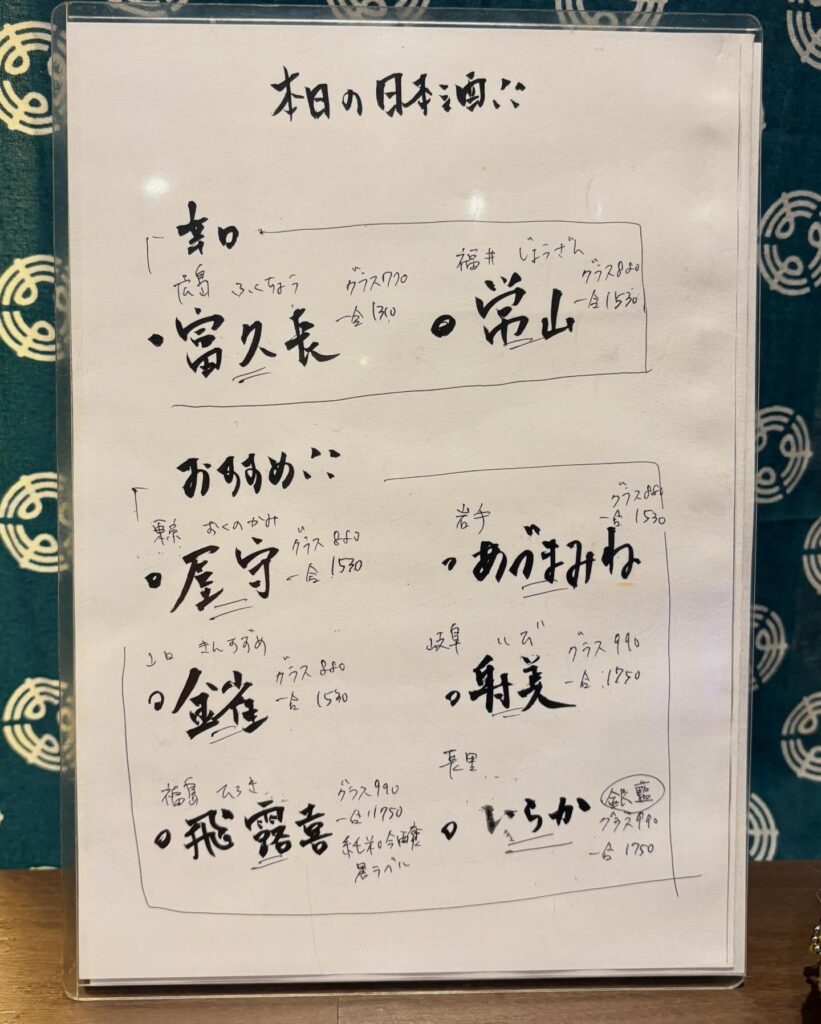 本日の日本酒∴
辛口
広島 ふくちょう グラス770
一合1340
・富久長
福井 じょうざん グラス880
一合1530
・常山
おすすめ∴
東京 おくのかみ グラス880
一合1530
・屋守
岩手 グラス880
一合1530
・あづまみね
山口 きんすずめ グラス880
一合1530
・金雀
岐阜 いび グラス990
一合1750
・射美
福島 ひろき グラス990
一合1750
純米吟醸
黒ラベル
・飛露喜
いらか
銀藍
グラス990
一合1750